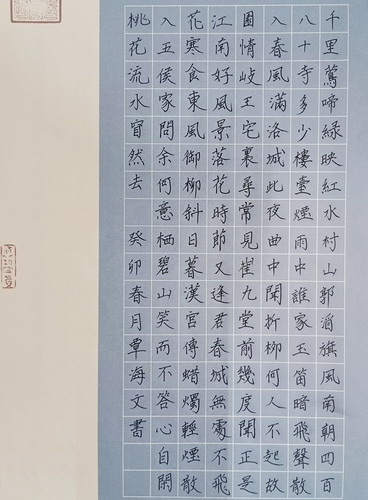 千里鶯啼綠映紅水村山郭酒旗風南朝四百
八十寺多少樓臺煙雨中誰家玉笛暗飛聲散
入春風滿洛城此夜曲中聞折柳何人不起故
園情岐王宅裏尋常見崔九堂前幾度聞正是
江南好風景落花時節又逢君春城無處不飛
花寒食東風御柳斜日暮漢宮傳蜡燭輕煙散
入五侯家問余何意栖碧山笑而不答心自閑
桃花流水窅然去 癸卯春月覃海文書